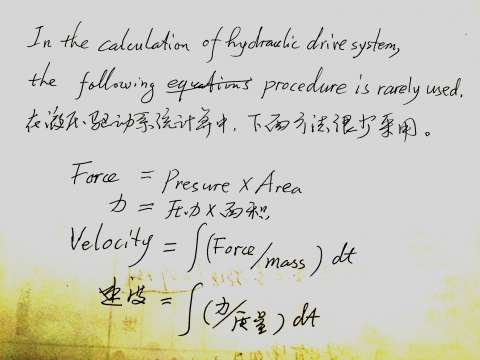 In the calculation of hydraulic drive system,
the following equations procedure is rarely used.
在液压驱动系统计算中，下面方法很少采用。
Force = Presure × Area
力 = 压力 × 面积
Velocity = ∫(Force/mass) dt
速度 = ∫(力/质量) dt